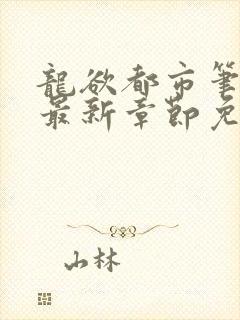 龍欲都市筆
最新章節免
山林